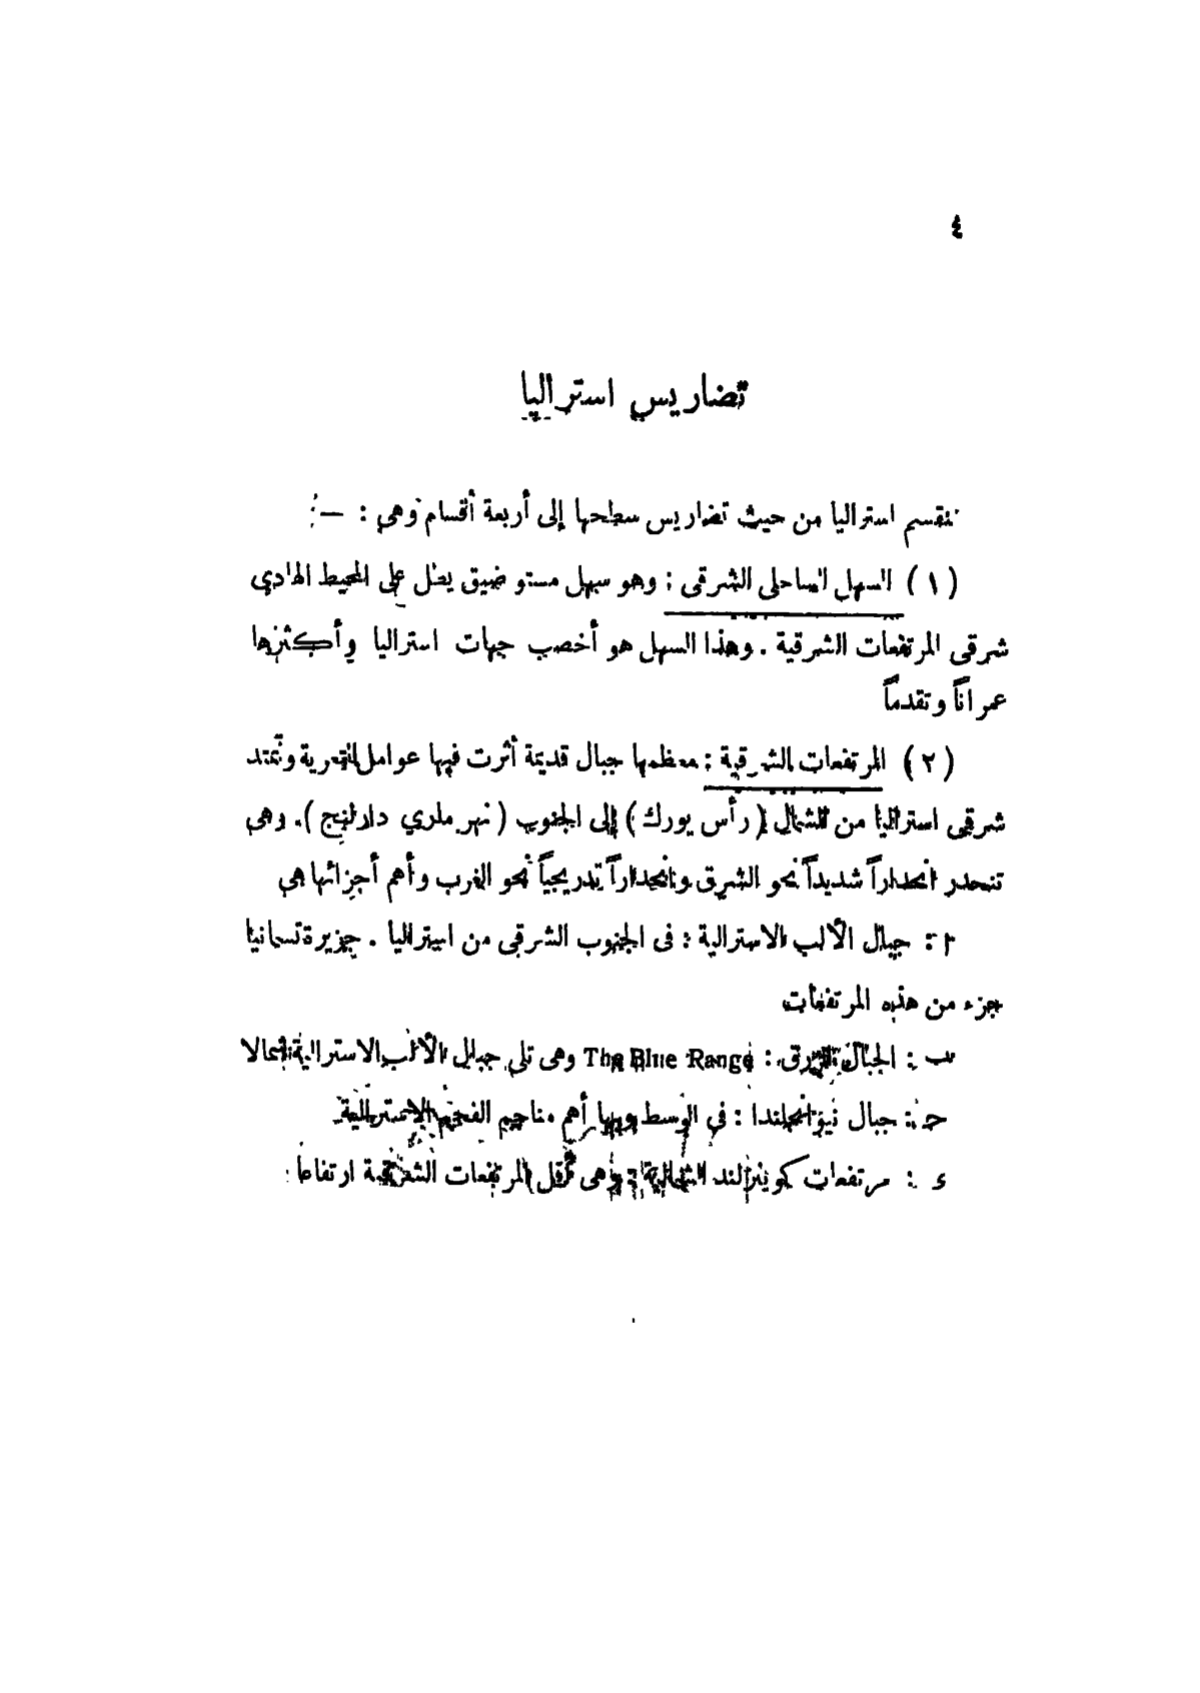 ٤
تضاريس استراليا
تنقسم استراليا من حيث تضاريس سطحها إلى أربعة أقسام وهي : —
( ١ ) السهل الساحلى الشرقى : وهو سهل مستو ضيق يطل على المحيط الهادى
شرقى المرتفعات الشرقية . وهذا السهل هو أخصب جهات استراليا وأكثرها
عمراناً وتقدماً
( ٢ ) المرتفعات الشرقية : معظمها جبال قديمة أثرت فيها عوامل التعرية وتمتد
شرقى استراليا من الشمال ( رأس يورك ) إلى الجنوب ( نهر ملري دارلنج ) . وهى
تنحدر انحداراً شديداً نحو الشرق وانحداراً تدريجياً نحو الغرب وأهم أجزائها هي
ا : جبال الألب الاسترالية : فى الجنوب الشرقى من استراليا . جزيرة تسمانيا
جزء من هذه المرتفعات
ب : الجبال الزرق : The Blue Range وهى تلى جبال الألب الاسترالية شمالا
ح : جبال نيو انجلندا : في الوسط وبها أهم مناجم الفحم الاسترالية
ء : مرتفعات كوينزلند الشمالية : وهى أقل المرتفعات الشرقية ارتفاعا